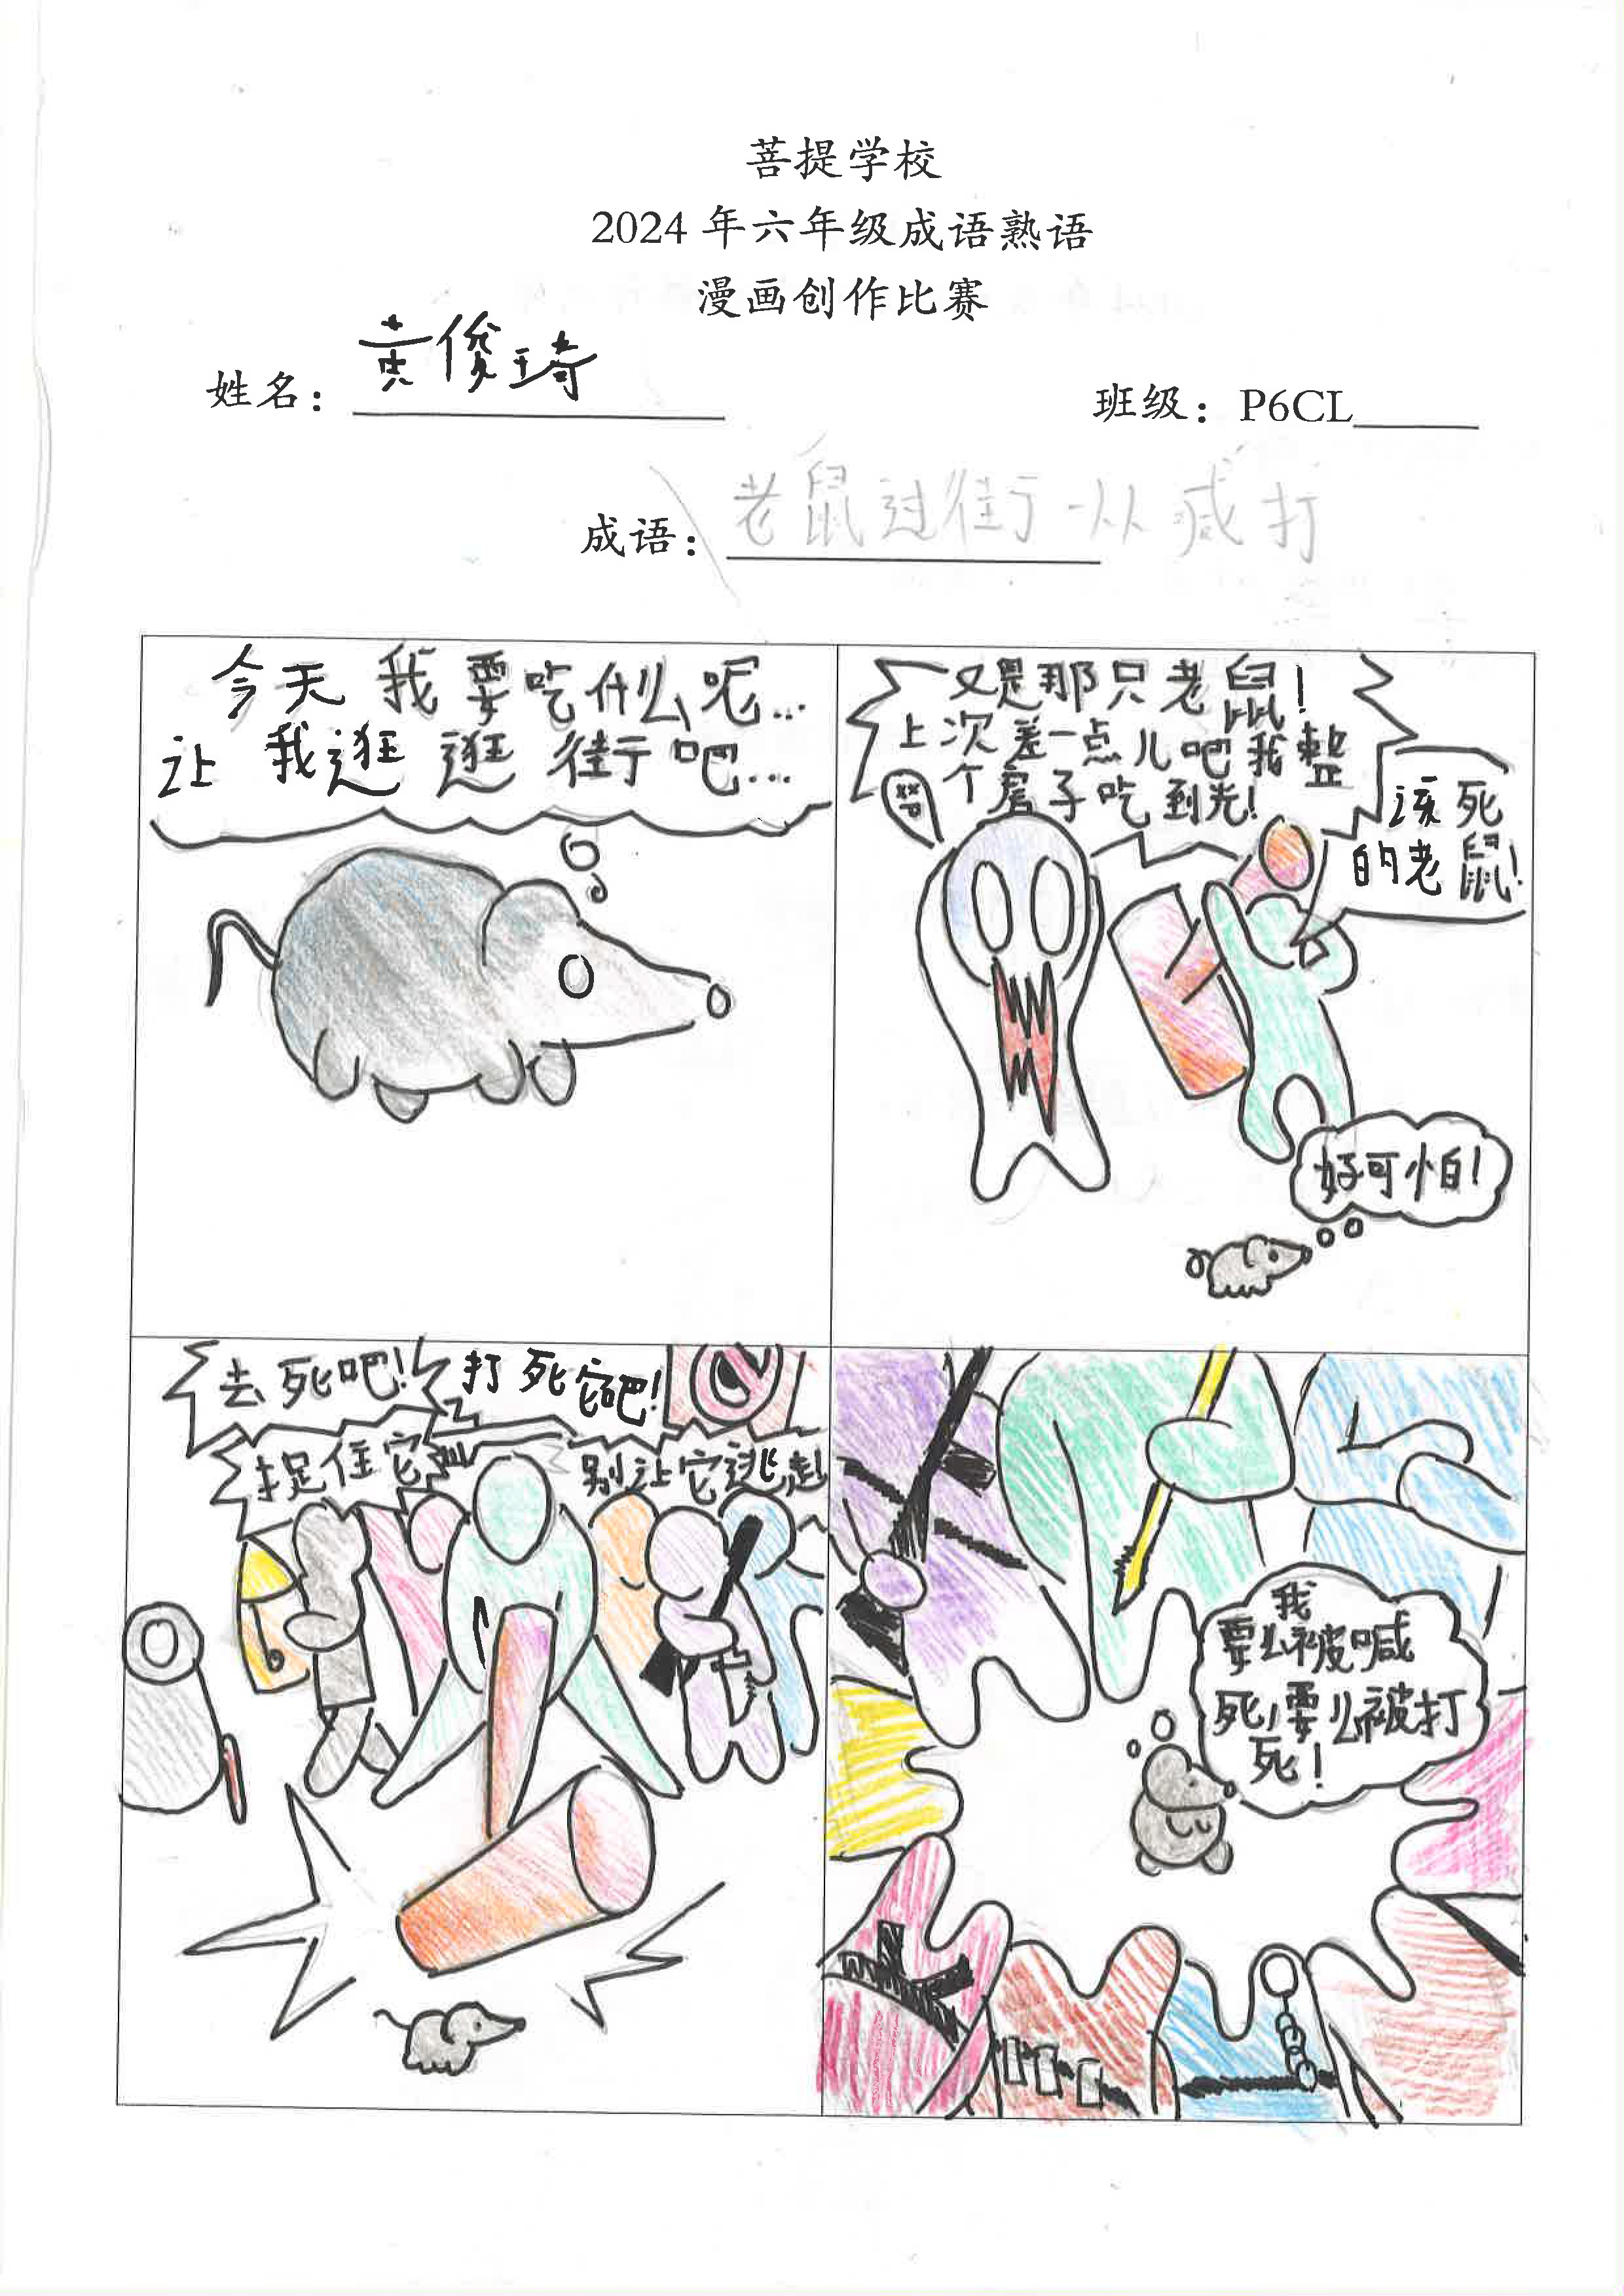 菩提学校
2024 年六年级成语熟语
漫画创作比赛
姓名：黄俊琦
班级：P6CL
成语：老鼠过街一从喊打
今天我要吃什么呢...
让我逛逛街吧...
又是那只老鼠！
上次差一点儿吧我整
个房子吃到光！
该死
的老鼠！
好可怕！
去死吧！
打死它吧！
捉住它
别让它逃走
我
要么被喊
死，要么被打
死！